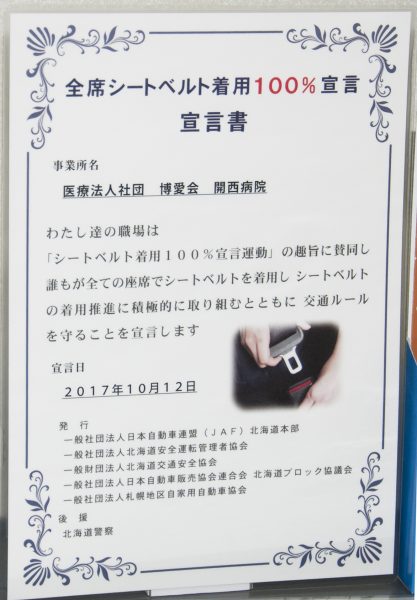 全席シートベルト着用100%宣言
宣言書
事業所名
医療法人社団　博愛会　開西病院
わたし達の職場は
「シートベルト着用１００％宣言運動」の趣旨に賛同し
誰もが全ての座席でシートベルトを着用し シートベルト
の着用推進に積極的に取り組むとともに 交通ルール
を守ることを宣言します
宣言日
２０１７年１０月１２日
発　行
一般社団法人日本自動車連盟（ＪＡＦ）北海道本部
一般社団法人北海道安全運転管理者協会
一般財団法人北海道交通安全協会
一般社団法人日本自動車販売協会連合会 北海道ブロック協議会
一般社団法人札幌地区自家用自動車協会
後　援
北海道警察